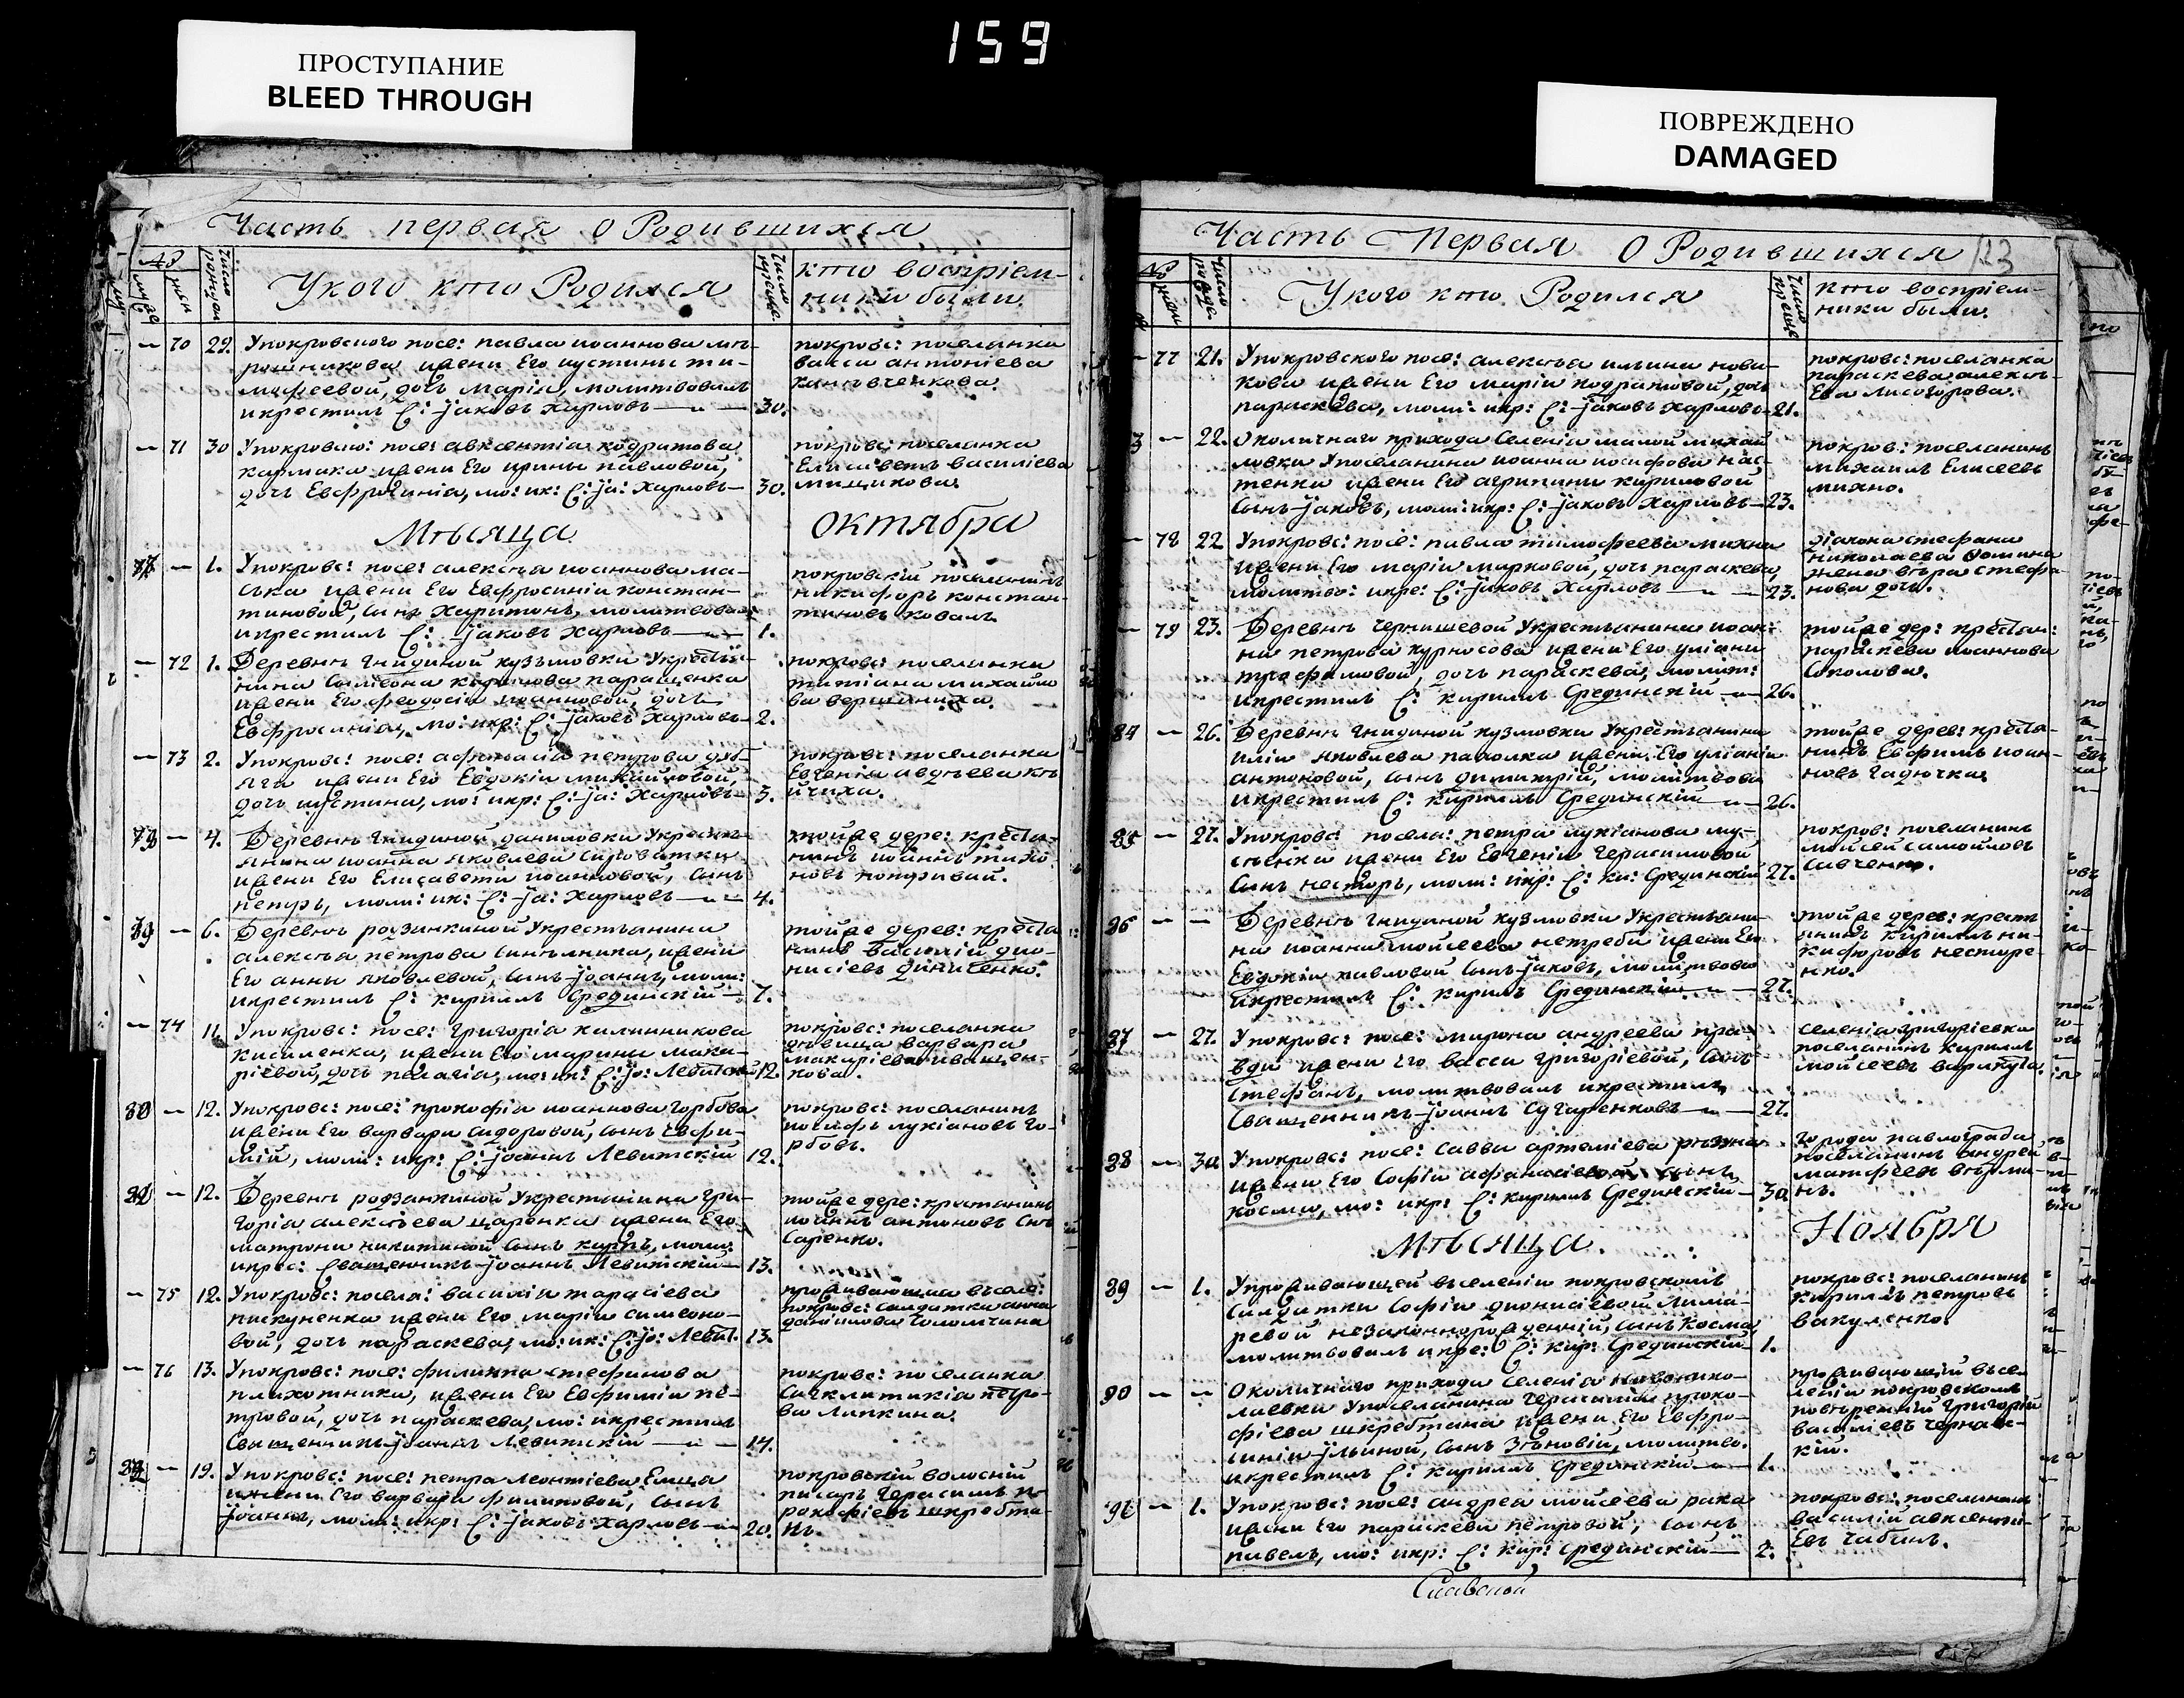 159
ПРОСТУПАНИЕ
BLEED THROUGH
ПОВРЕЖДЕНО
DAMAGED
Часть первая о Родившихся
№
Число
У кого кто Родился
кто воспріем-
ники были.
70 29. У покровского посе: павла иоаннова
жени Его иустины ти-
мофеевой, дочь Марія, молитвовалъ
и крестилъ С: Јаковъ Харловъ 30.
покровс: поселянка
васса антоніева
71 30 У покровско: посе: авксентіа кодратова
кармака жени Его ирины павловой,
дочь Евфросинія, мо: и к: С: Ја: Харловъ 30.
покровс: поселянка
Елисаветъ василіева
мищикова.
Мѣсяца Октября
1. У покровс: посе: алексѣа иоаннова ма-
ська жени Его Евфросиніи констан-
тиновой, сынъ Харитонъ, молитвова:
и крестилъ С: Јаковъ Харловъ 1.
покровскій поселянинъ
никифоръ констан-
тиновъ коваль.
72 1. Деревнѣ Гнидиной кузьмовки У крестья-
нина Симеона паращенка
жени Его феодосіи иоанновой, дочь
Евфросинія, мо: и кр: С: Јаковъ Харловъ 2.
покровс: поселянка
татіана михайло
ва вершиниха.
73 2. У покровс: посе: афанасіа петрова дуб-
яги жени Его Евдокіи михайловой,
дочь иустина, мо: и кр: С: Ја: Харловъ 3.
покровс: поселянка
Евгенія авдѣева
4. Деревнѣ Гнидиной даниловки У кресть-
янина иоанна яковлева сироватки
жени Его Елисавети иоанновой, сынъ
петръ, моли: и к: С: Ја: Харловъ 4.
тойже дере: крестья-
нинъ иоаннъ тихо
новъ
6. Деревнѣ родзянкиной У крестьянина
алексѣа петрова синельника, жени
Его анны яковлевой, сынъ Јоаннъ, моли:
и крестилъ С: кириллъ Срединскій 7.
тойже дерев: крестья
нинъ василій дио-
нисіевъ диниченко.
74 11. У покровс: посе: григоріа калинникова
кисиленка, жени Его марины мака-
ріевой, дочь пелагіа, мо: и к: С: Јо: Левитскій 12.
покровс: поселянка
дѣвица варвара
макаріева иващен-
кова.
12. У покровс: посе: прокофіа иоаннова горбова
жени Его варвари сидоровой, сынъ Евфи-
мій, моли: и кр: С: Јоаннъ Левитскій 12.
покровс: поселянинъ
иосифъ лукіановъ го-
рбовъ.
12. Деревнѣ родзянкиной У крестьянина гри-
горіа алексѣева царенка жени Его
матрони никитиной сынъ карпъ, моли:
и крес: Священникъ Јоаннъ Левитскій 13.
тойже дере: крестьянинъ
иоаннъ антоновъ
саренко.
75 12. У покровс: посел: василія тарасіева
пискуненка жени Его маріи симеоно-
вой, дочь параскева, мо: и к: С: Јо: Левит. 13.
проживающая въ селе:
покровс: солдатка анна
даніилова соломчина
76 13. У покровс: посе: филиппа стефанова
плихотника, жени Его Евфиміи пе-
тровой, дочь параскева, мо: и крестилъ
Священникъ Јоаннъ Левитскій 14.
покровс: поселянка
синклитикіа петро-
ва липкина.
19. У покровс: посе: петра леонтіева Емца
жени Его варвары филиповой, сынъ
Јоаннъ, моли: и кр: С: Јаковъ Харловъ 20.
покровскій волосній
писаръ герасимъ п
рокофіевъ шкребта-
нъ.
Часть Первая О Родившихся 123
№
Число
У кого кто Родился
кто воспріем-
ники были.
77 21. У покровского посе: алексѣа ильина нови-
кова жени Его маріи кодратовой, дочь
параскева, моли: и кр: С: Јаковъ Харловъ 21.
покровс: поселянка
параскева алексѣ-
Ева лисогорова.
22. Околичнаго прихода Селенія малой михай
ловки У поселянина иоанна иосифова нас-
тенка жени Его агрипини кириловой
сынъ Јаковъ, моли: и кр: С: Јаковъ Харловъ 23.
покров: поселянинъ
михаилъ Елисеевъ
михно.
78 22 У покровс: посе: павла тимофеева михна
жени Его маріи марковой, дочь параскева,
молитво: и кре: С: Јаковъ Харловъ 23.
діакона стефана
николаева Фомина
жена вѣра стефа
нова дочь.
79 23. Деревнѣ чернишевой У крестьянина иоан-
на петрова курносова жени Его уліани
трофимовой, дочь параскева, молит:
и крестилъ С: кириллъ Срединскій 26.
тойже дер: крестьян:
параскева иоаннова
Соколова.
84 26. Деревнѣ Гнидиной кузмовки У крестьянина
иліи яковлева жени Его уліаніи
антоновой, сынъ димитрій, молитвова
и крестилъ С: кириллъ Срединскій 26.
тойже дерев: крестья-
нинъ Евфимъ иоан-
новъ гадючка.
85 27. У покровс: посела: петра лукіанова лу-
сѣнка жени Его Евгеніи герасимовой
сынъ несторъ, моли: и кр: С: ки: Срединскій 27.
покров: поселянинъ
мойсей самойловъ
савченко.
86 Деревнѣ Гнидиной кузмовки У крестьяни-
на иоанна мойсеева нетреби жени Его
Евдокіи павловой сынъ Јаковъ, молитвова
и крестилъ С: кирилъ Срединскій 27.
тойже дерев: кресть
янинъ кириллъ ни-
кифоровъ нестере-
нко.
87 27. У покровс: посе: мирона андреева пра-
вди жени Его васси григоріевой, сынъ
Стефанъ, молитвовалъ и крестилъ
Священникъ Јоаннъ Сугаренковъ 27.
селенія григоріевка
поселянинъ кириллъ
мойсеевъ
88 30 У покровс: посе: савви артеміева
жени Его Софіи афанасіевой сынъ
косма, мо: и кр: С: кириллъ Срединскій 30.
города павлограда
поселянинъ андрей
матфеевъ
Мѣсяца. Ноября
89 1. У проживающей въ селеніи покровскомъ
Солдатки Софіи дионисіевой лима-
ревой незаконнорожденній, сынъ Косма
молитвовалъ и кре: С: кир: Срединскій 1.
покровс: поселянинъ
кириллъ петровъ
вакуленко.
90 Околичнаго прихода селенія Новонико-
лаевки У поселянина герасима проко-
фіева шкребтана жени Его Евфро-
синіи Ульиной, сынъ Зѣновій, молитво.
и крестилъ С: кириллъ Срединскій 1.
проживающій въ се
леніи покровскомъ
повѣренній григорій
василіевъ
кій.
1. У покровс: посе: андрея мойсеева рака
жени Его параскеви петровой, сынъ
павелъ, мо: и кр: С: кир: Срединскій 2.
покровс: поселянинъ
василій авксентій-
Евъ чабинъ.